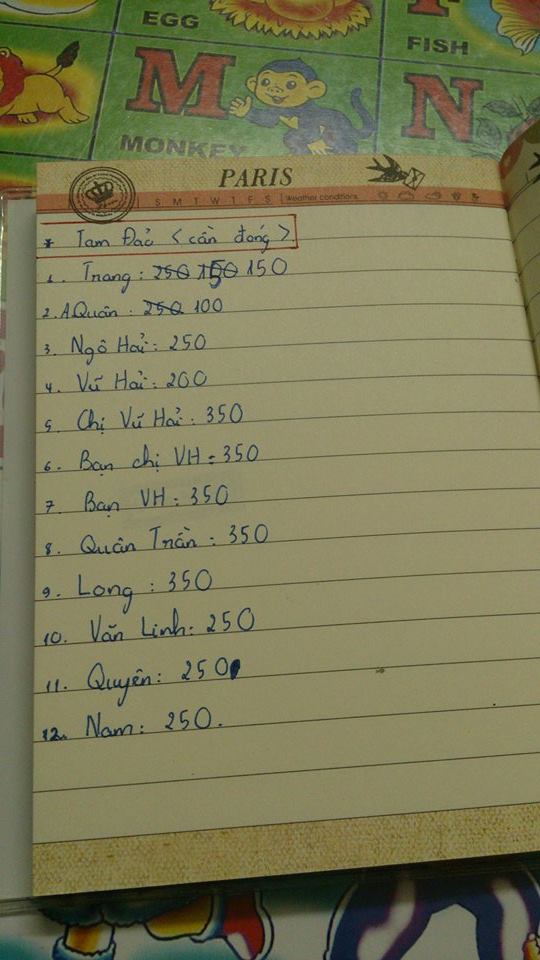 EGG
FISH
M
N
MONKEY
PARIS
S M T W T F S Weather conditions
* Tam Đảo < cần đóng >
1. Trang: 250 150 150
2. A Quân : 250 100
3. Ngô Hải: 250
4. Vũ Hải: 200
5. Chị Vũ Hải: 350
6. Bạn chị VH: 350
7. Bạn VH: 350
8. Quân Trần: 350
9. Long : 350
10. Văn Linh: 250
11. Quyên: 250
12. Nam: 250.